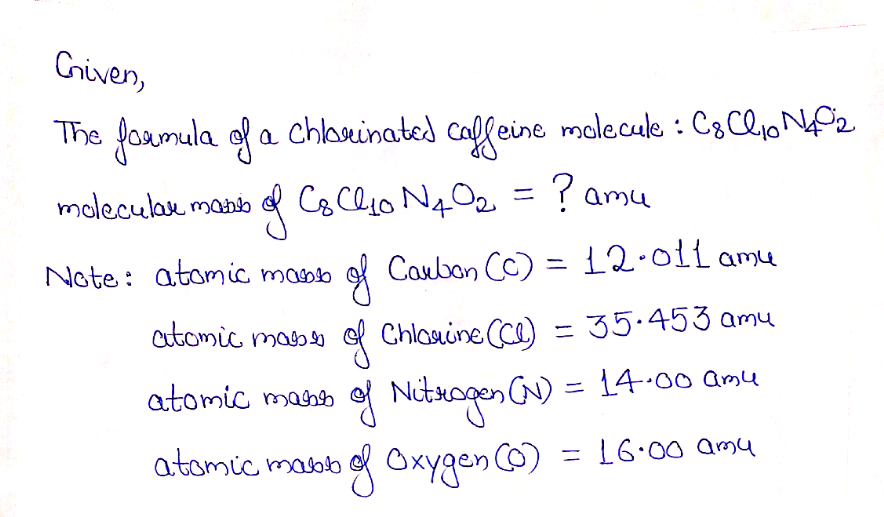 Given,
The formula of a chlorinated caffeine molecule : C₈Cl₁₀N₄O₂
molecular mass of C₈Cl₁₀N₄O₂ = ? amu
Note : atomic mass of Carbon (C) = 12.011 amu
atomic mass of Chlorine (Cl) = 35.453 amu
atomic mass of Nitrogen (N) = 14.00 amu
atomic mass of Oxygen (O) = 16.00 amu